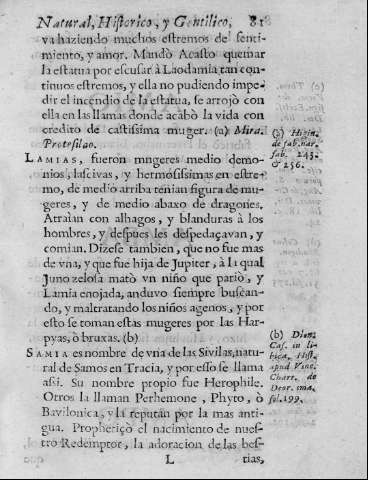 Natural, Historico, y Gentilico, 81
va haziendo muchos estremos de senti-
miento, y amor. Mandò Acasto quemar
la estatua por escusar à Laodamia tan con-
tinuos estremos, y ella no pudiendo impe-
dir el incendio de la estatua, se arrojò con
ella en las llamas donde acabò la vida con
credito de castissima muger. (a) Mira.
Protesilao.
(a) Higin.
de fab. nar.
fab. 243.
& 256.
LAMIAS, fueron mngeres medio demo-
nios, lascivas, y hermosissimas en estre-
mo, de medio arriba tenian figura de mu-
geres, y de medio abaxo de dragones.
Atraían con alhagos, y blanduras à los
hombres, y despues les despedaçavan, y
comian. Dizese tambien, que no fue mas
de vna, y que fue hija de Jupiter, à la qual
Juno zelosa matò vn niño que pariò, y
Lamia enojada, anduvo siempre buscan-
do, y maltratando los niños agenos, y por
esto se toman estas mugeres por las Har-
pyas, ò bruxas. (b)
(b) Dion;
Cas. in li-
bica, Hist.
apud Vinc.
Chart. de
Deor. ima.
fol. 199.
SAMIA es nombre de vna de las Sivilas, natu-
ral de Samos en Tracia, y por esso se llama
assi. Su nombre propio fue Herophile.
Otros la llaman Perhemone, Phyto, ò
Bavilonica, y la reputan por la mas anti-
gua. Propheriçò el nacimiento de nues-
tro Redemptor, la adoracion de las bes-
L tias,